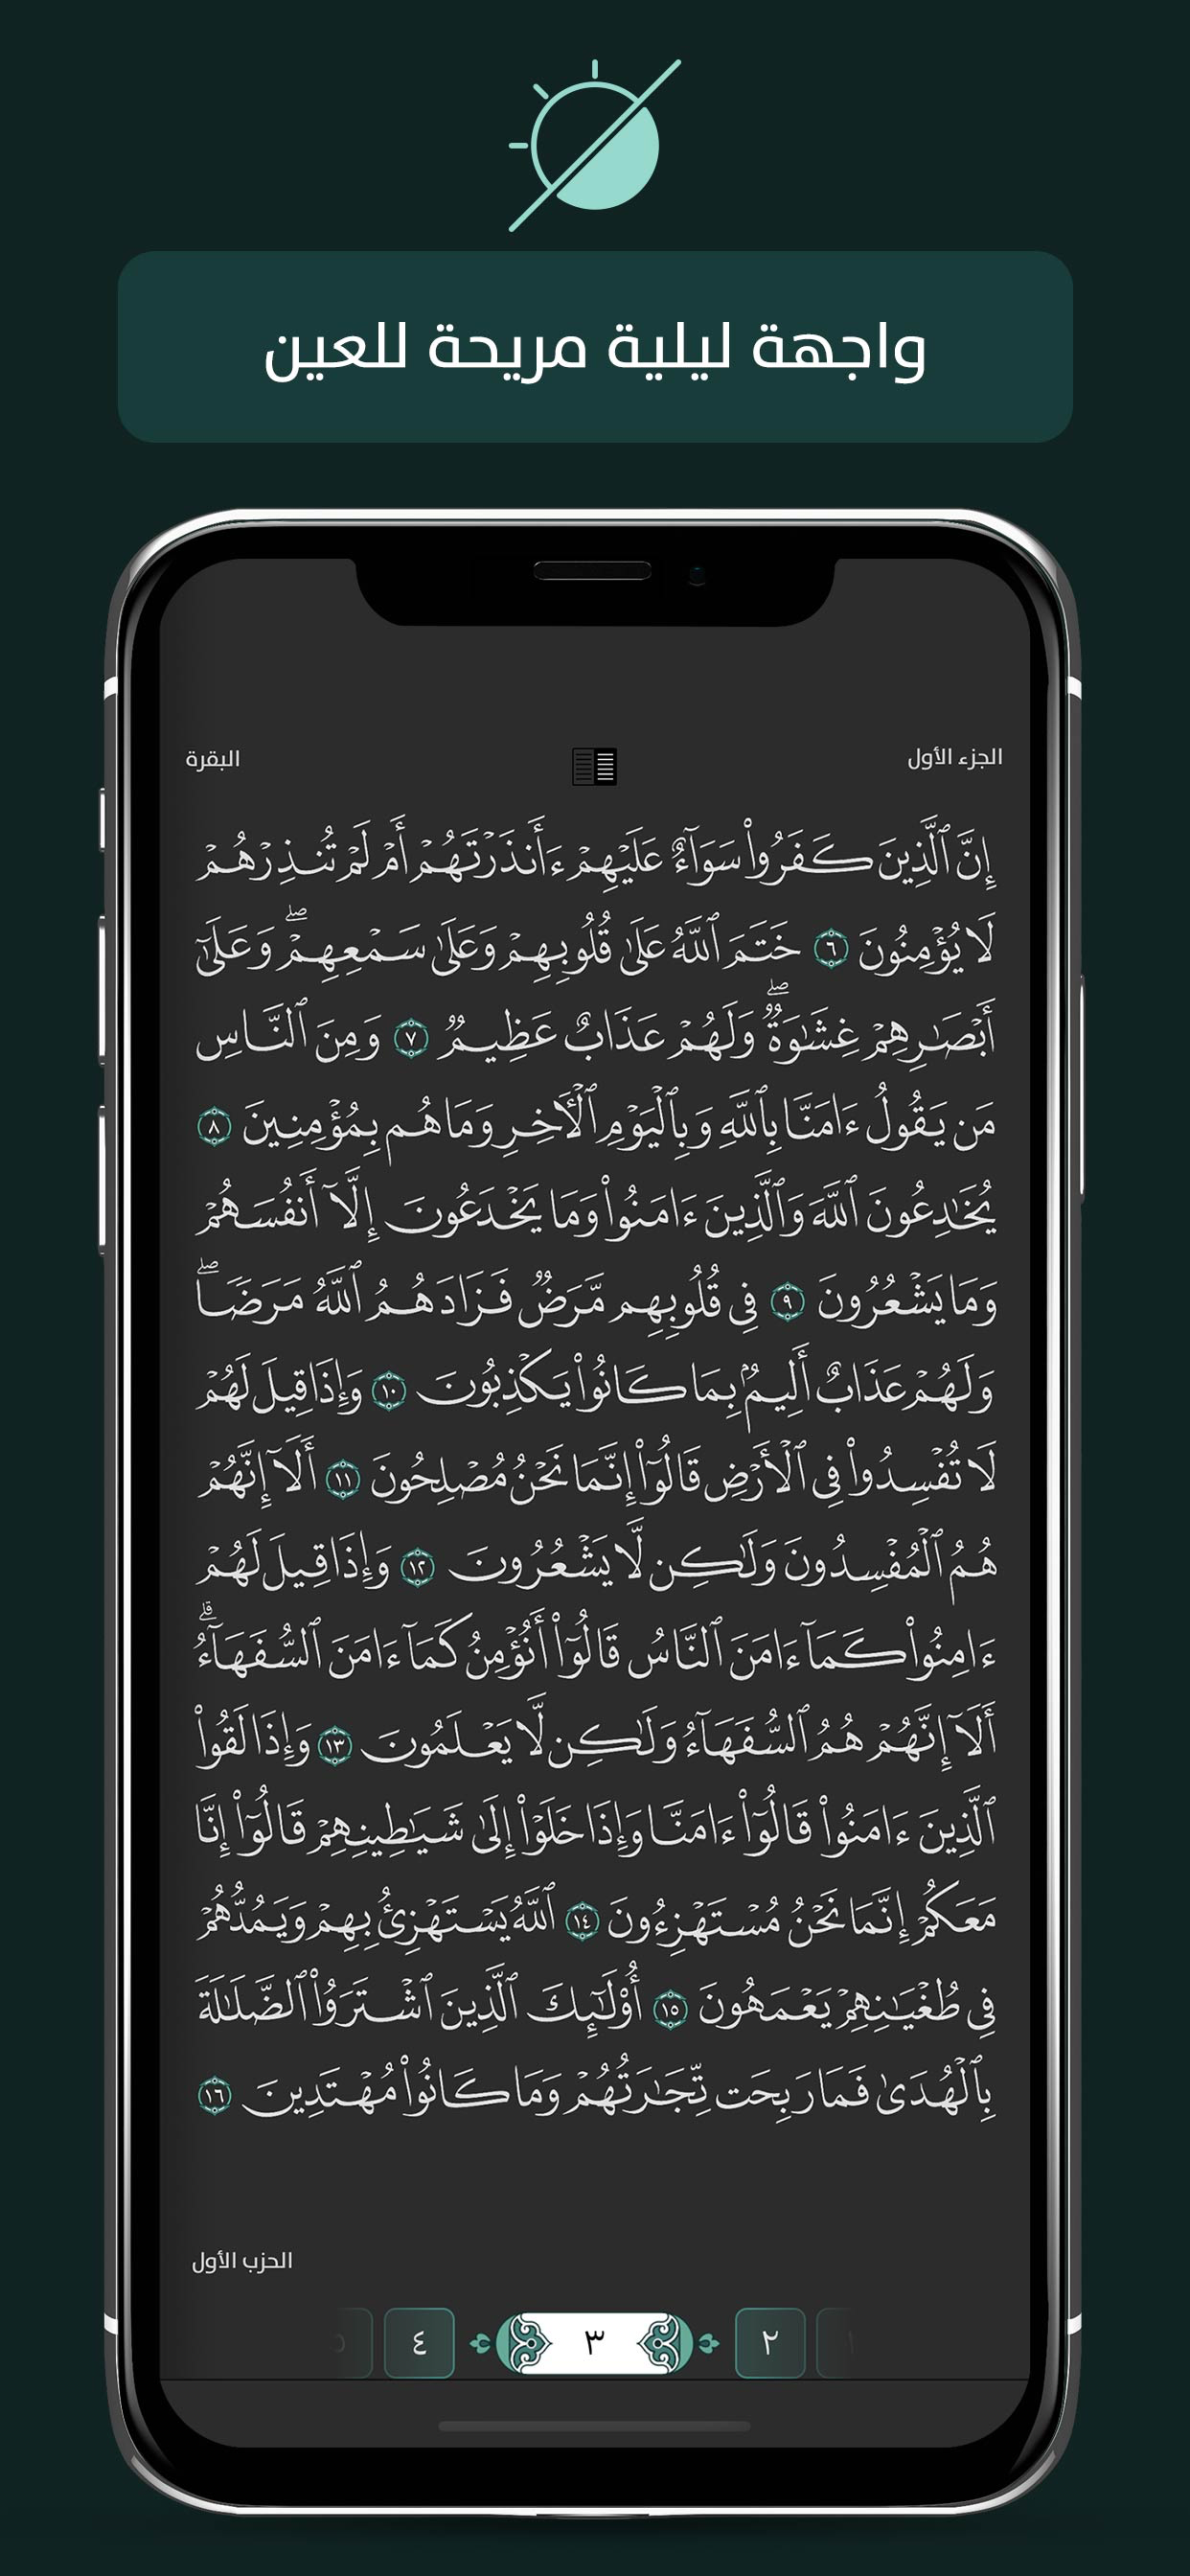 واجهة ليلية مريحة للعين
الجزء الأول
البقرة
إِنَّ ٱلَّذِينَ كَفَرُوا۟ سَوَآءٌ عَلَيْهِمْ ءَأَنذَرْتَهُمْ أَمْ لَمْ تُنذِرْهُمْ
لَا يُؤْمِنُونَ ٦ خَتَمَ ٱللَّهُ عَلَىٰ قُلُوبِهِمْ وَعَلَىٰ سَمْعِهِمْ ۖ وَعَلَىٰٓ
أَبْصَـٰرِهِمْ غِشَـٰوَةٌ ۖ وَلَهُمْ عَذَابٌ عَظِيمٌ ٧ وَمِنَ ٱلنَّاسِ
مَن يَقُولُ ءَامَنَّا بِٱللَّهِ وَبِٱلْيَوْمِ ٱلْـَٔاخِرِ وَمَا هُم بِمُؤْمِنِينَ ٨
يُخَـٰدِعُونَ ٱللَّهَ وَٱلَّذِينَ ءَامَنُوا۟ وَمَا يَخْدَعُونَ إِلَّآ أَنفُسَهُمْ
وَمَا يَشْعُرُونَ ٩ فِى قُلُوبِهِم مَّرَضٌ فَزَادَهُمُ ٱللَّهُ مَرَضًا ۖ
وَلَهُمْ عَذَابٌ أَلِيمٌۢ بِمَا كَانُوا۟ يَكْذِبُونَ ١٠ وَإِذَا قِيلَ لَهُمْ
لَا تُفْسِدُوا۟ فِى ٱلْأَرْضِ قَالُوٓا۟ إِنَّمَا نَحْنُ مُصْلِحُونَ ١١ أَلَآ إِنَّهُمْ
هُمُ ٱلْمُفْسِدُونَ وَلَـٰكِن لَّا يَشْعُرُونَ ١٢ وَإِذَا قِيلَ لَهُمْ
ءَامِنُوا۟ كَمَآ ءَامَنَ ٱلنَّاسُ قَالُوٓا۟ أَنُؤْمِنُ كَمَآ ءَامَنَ ٱلسُّفَهَآءُ ۗ
أَلَآ إِنَّهُمْ هُمُ ٱلسُّفَهَآءُ وَلَـٰكِن لَّا يَعْلَمُونَ ١٣ وَإِذَا لَقُوا۟
ٱلَّذِينَ ءَامَنُوا۟ قَالُوٓا۟ ءَامَنَّا وَإِذَا خَلَوْا۟ إِلَىٰ شَيَـٰطِينِهِمْ قَالُوٓا۟ إِنَّا
مَعَكُمْ إِنَّمَا نَحْنُ مُسْتَهْزِءُونَ ١٤ ٱللَّهُ يَسْتَهْزِئُ بِهِمْ وَيَمُدُّهُمْ
فِى طُغْيَـٰنِهِمْ يَعْمَهُونَ ١٥ أُو۟لَـٰٓئِكَ ٱلَّذِينَ ٱشْتَرَوُا۟ ٱلضَّلَـٰلَةَ
بِٱلْهُدَىٰ فَمَا رَبِحَت تِّجَـٰرَتُهُمْ وَمَا كَانُوا۟ مُهْتَدِينَ ١٦
الحزب الأول
١ ٢ ٣ ٤ ٥